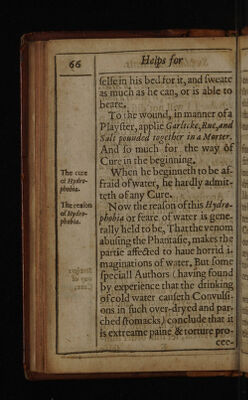 66
Helps for
selfe in his bed for it, and sweate
as much as he can, or is able to
beare.
To the wound, in manner of a
Playster, applie Garlicke, Rue, and
Salt pounded together in a Morter.
And so much for the way of
Cure in the beginning.
The cure
of Hydro-
phobia.
When he beginneth to be af-
fraid of water, he hardly admit-
teth of any Cure.
The reason
of Hydro-
phobia.
Now the reason of this Hydro-
phobia or feare of water is gene-
rally held to be, That the venom
abusing the Phantasie, makes the
partie affected to have horrid i-
maginations of water. But some
speciall Authors (having found
by experience that the drinking
of cold water causeth Convulsi-
ons in such over-dryed and par-
ched stomacks) conclude that it
is extreame paine & torture pro-
cee-